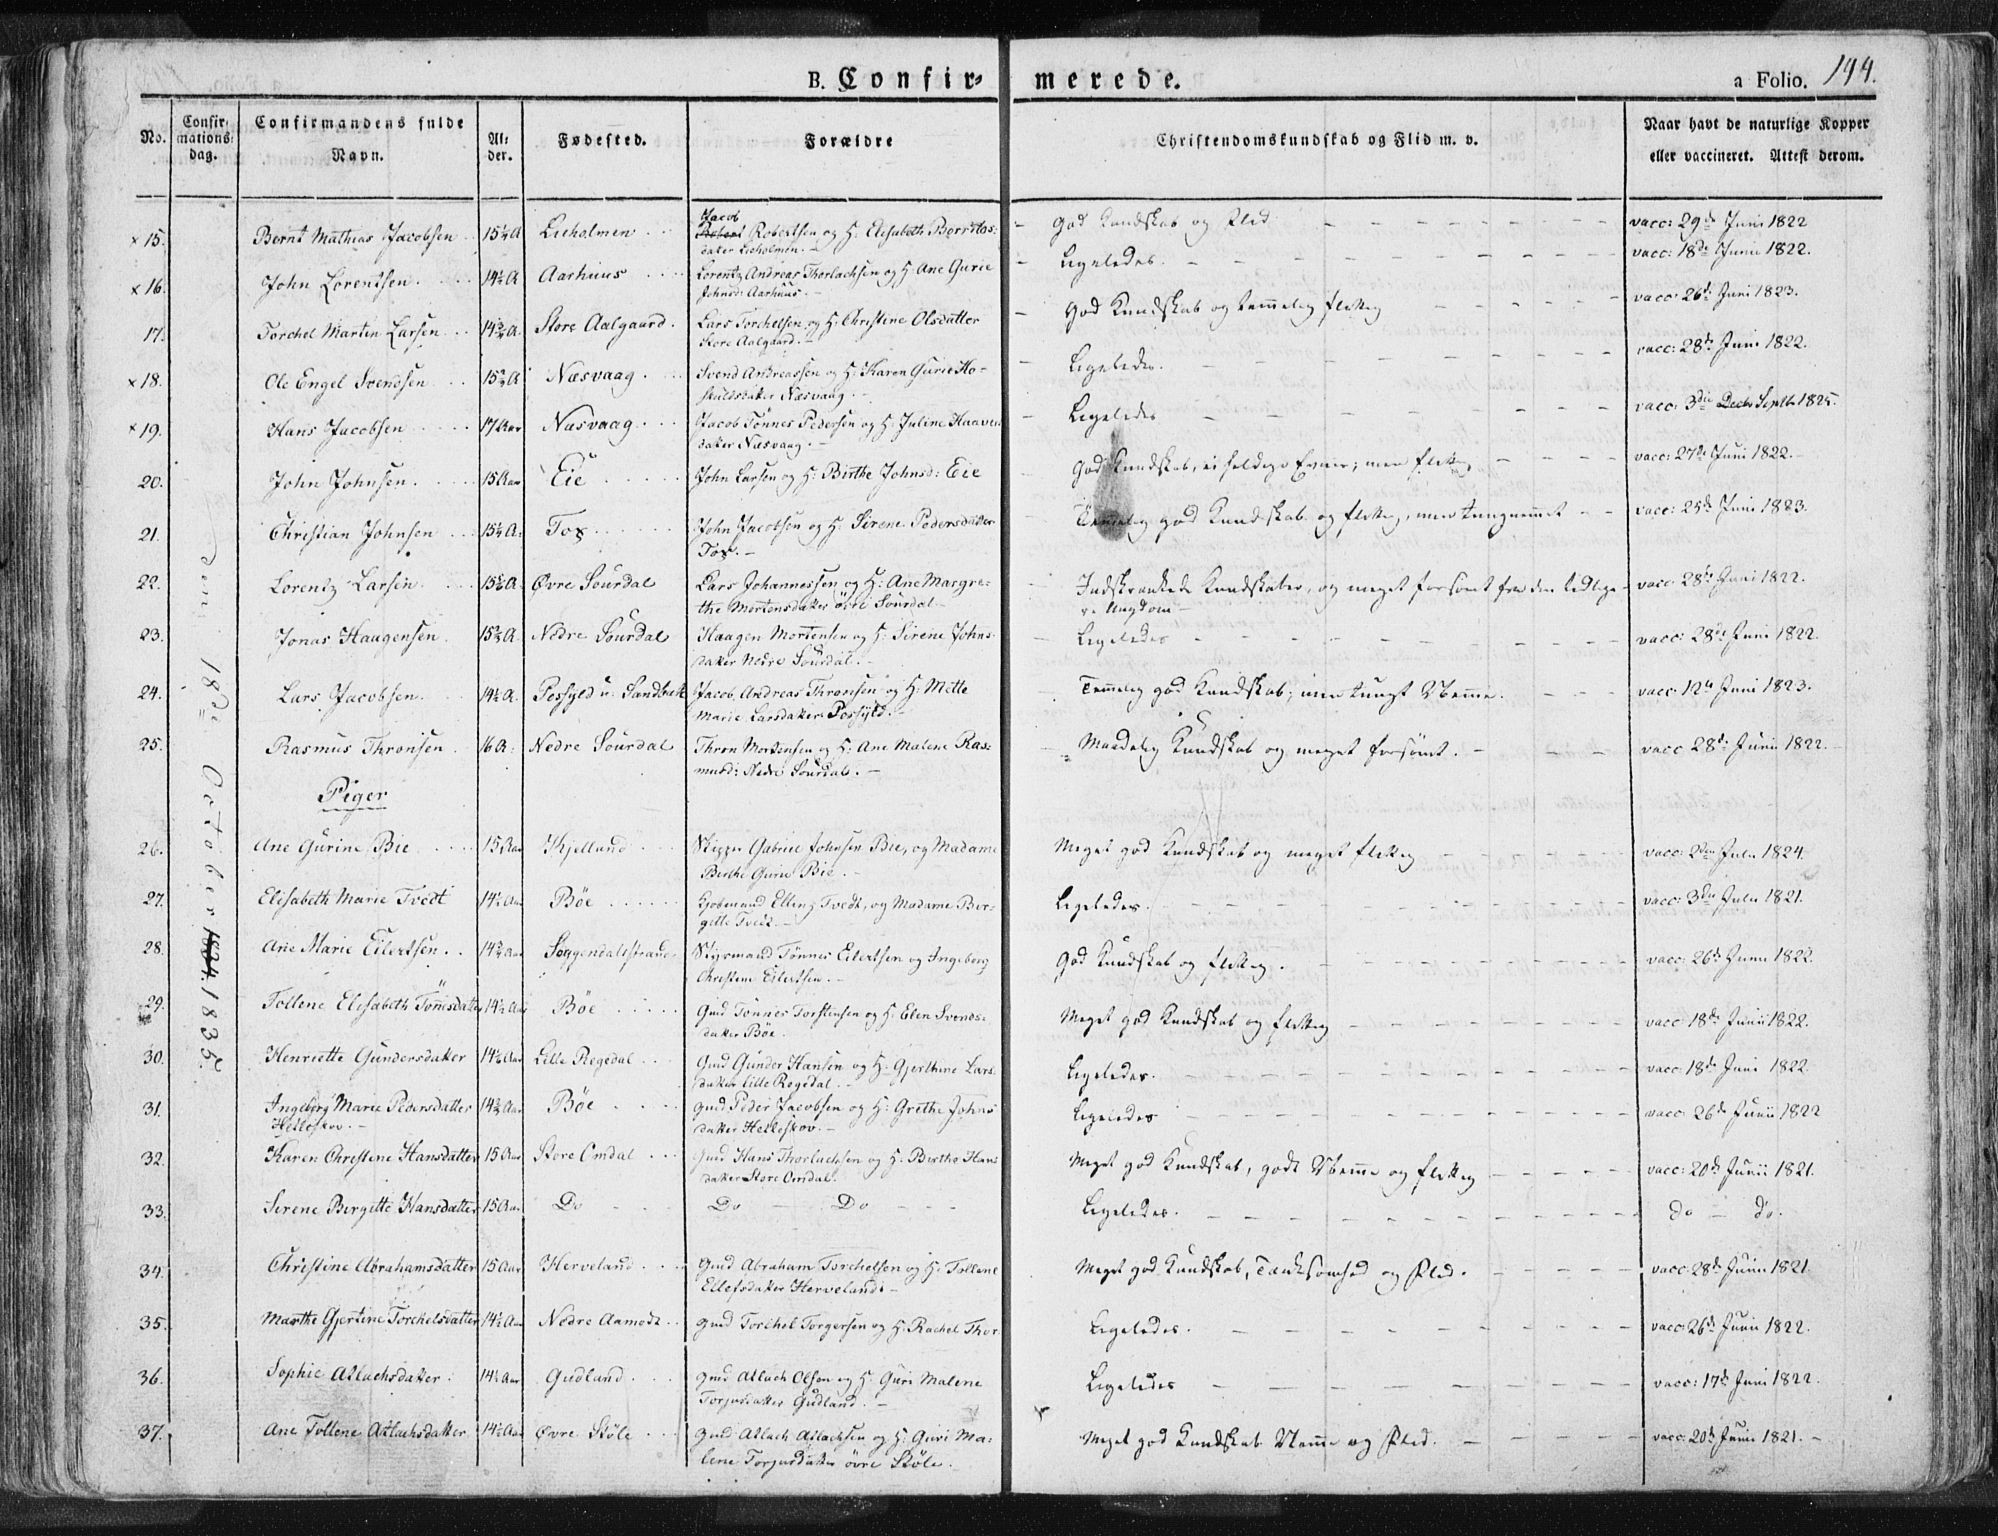 B. Confir- merede. a Folio. 144.
No. Confirmations dag. Confirmandens fulde Navn. Alder. Fødested. Forældre Christendomskundskab og Flid m. v. Naar havt de naturlige Kopper eller vaccineret. Attest derom.
18de October 1834 1835
x 15. Bernt Mathias Jacobsen 15½ A Lieholmen Jacob Robertsen og H: Elisabeth Bernts-
datter Lieholmen.- God Kundskab og Flid vacc: 29de Juni 1822
x 16. John Lorentsen. 14½ A Aarhuus Lorentz Andreas Thorlachsen og H: Ane Gurie
Johnsd: Aarhuus.- Ligeledes. vacc: 18de Junii 1822.
17. Torchel Martin Larsen 14¾ A. Store Aalgaard. Lars Torchelsen og H: Christine Olsdatter
Store Aalgaard.- God Kundskab og temmelig flittig vacc: 26de Juni 1823.
x 18. Ole Engel Svendsen 15¾ A Næsvaag. Svend Andreassen og H: Karen Gurie Ho-
skuldsdatter Næsvaag.- Ligeledes. vacc: 28de Juni 1822.
x 19. Hans Jacobsen 17 Aar Næsvaag. Jacob Tønnes Pedersen og H: Juline Haavor
datter Næsvaag.- Ligeledes vacc: 3die Septbr 1825.
20. John Johnsen. 15 Aar Eie John Larsen og H: Birthe Johnsd: Eie God Kundskab, ei heldige Evner; men flittig vacc: 27de Juni 1822.
21. Christian Johnsen 15½ A: Tox John Jacobsen og H: Sirene Pedersdatter
Tox.- Temmelig god Kundskab og flittig, men tungnemmet vacc: 25de Juni 1823.
22. Lorentz Larsen. 15¾ A. Øvre Sourdal Lars Johannessen og H: Ane Margre-
the Mortensdatter øvre Sourdal. Indskrænkede Kundskaber, og meget forsømt fra den tidlige-
re Ungdom vacc: 28de Juni 1822.
23. Jonas Haagensen. 15¾ A. Nedre Sourdal Haagen Mortensen og H: Sirene Johns-
datter Nedre Sourdal.- Ligeledes vacc: 28de Juni 1822.
24. Lars Jacobsen. 14½ A. Jacob Andreas Thronsen og H: Mette
Marie Larsdatter Temmelig god Kundskab; men tungt Nemme. vacc: 12te Juni 1823.
25. Rasmus Thronsen 16 A: Nedre Sourdal Thron Mortensen og H: Ane Malene Ras-
musd: Nedre Sourdal.- Maadelig Kundskab og meget forsømt. vacc 28de Junii 1822.
Piger
26. Ane Gurine Bie 15 Aar Kjelland Skipper Gabriel Johnsen Bie, og Madame
Berthe Gurie Bie.- Meget god Kundskab og meget flittig vacc: 2den Julii 1824.
27. Elisabeth Marie Tvedt 14½ Aar Bøe Kjøbmand Elling Tvedt, og Madame Ber-
gitte Tvedt.- Ligeledes. vacc: 3die Julii 1821.
28. Ane Marie Eilertsen. 14¾ Aar Soggendalsstrand Tønnes Eilertsen og Ingeborg
Christine Eilertsen.- God Kundskab og flittig. vacc: 26de Junii 1822.
29. Tollene Elisabeth Tønnesdatter 14½ Aar Bøe Gmd Tønnes Torstensen og H: Elen Svends-
datter Bøe. Meget god Kundskab og flittig vacc 18de Junii 1822.
30. Henriette Gundersdatter 14½ Aar Lille Regedal Gmd Gunder Hansen og H: Gjerthine Lars-
datter Lille Regedal.- Ligeledes. vacc: 18de Juni 1822.
31. Ingeborg Marie Pedersdatter
Helleskov.- 14¾ Aar Bøe Gmd Peder Jacobsen og H: Grethe Johns-
datter Helleskov.- Ligeledes vacc: 26de Junii 1822
32. Karen Christine Hansdatter 15 Aar Store Omdal Gmd Hans Thorlachsen og H: Birthe Hans-
datter Store Omdal. Meget god Kundskab, godt Nemme og flittig vacc: 20de Junii 1821.
33. Serene Bergitte Hansdatter 15 Aar Do Do Do Ligeledes. do do.
34. Christine Abrahamsdatter 15 Aar Herveland Gmd Abraham Torchelsen og H: Tollene
Ellefsdatter Herveland.- Meget god Kundskab, Tænksomhed og Flid. vacc: 28de Junii 1821.
35. Marthe Gjertine Torchelsdatter 14½ Aar Nedre Aamodt Gmd Torchel Torgersen og H: Rachel Thor Ligeledes. vacc: 26de Junii 1822.
36. Sophie Atlachsdatter. 14½ Aar Gudland Gmd Atlach Olsen og H: Guri Malene
Torjusdatter Gudland.- Ligeledes vacc: 17de Juni 1822.
37. Ane Tollene Atlachsdatter 14½ Aar Øvre Støle Gmd Atlach Atlachsen og H: Guri Ma-
lene Torjusdatter øvre Støle. Meget god Kundskab Nemme og Flid. vacc: 20de Junii 1821.-